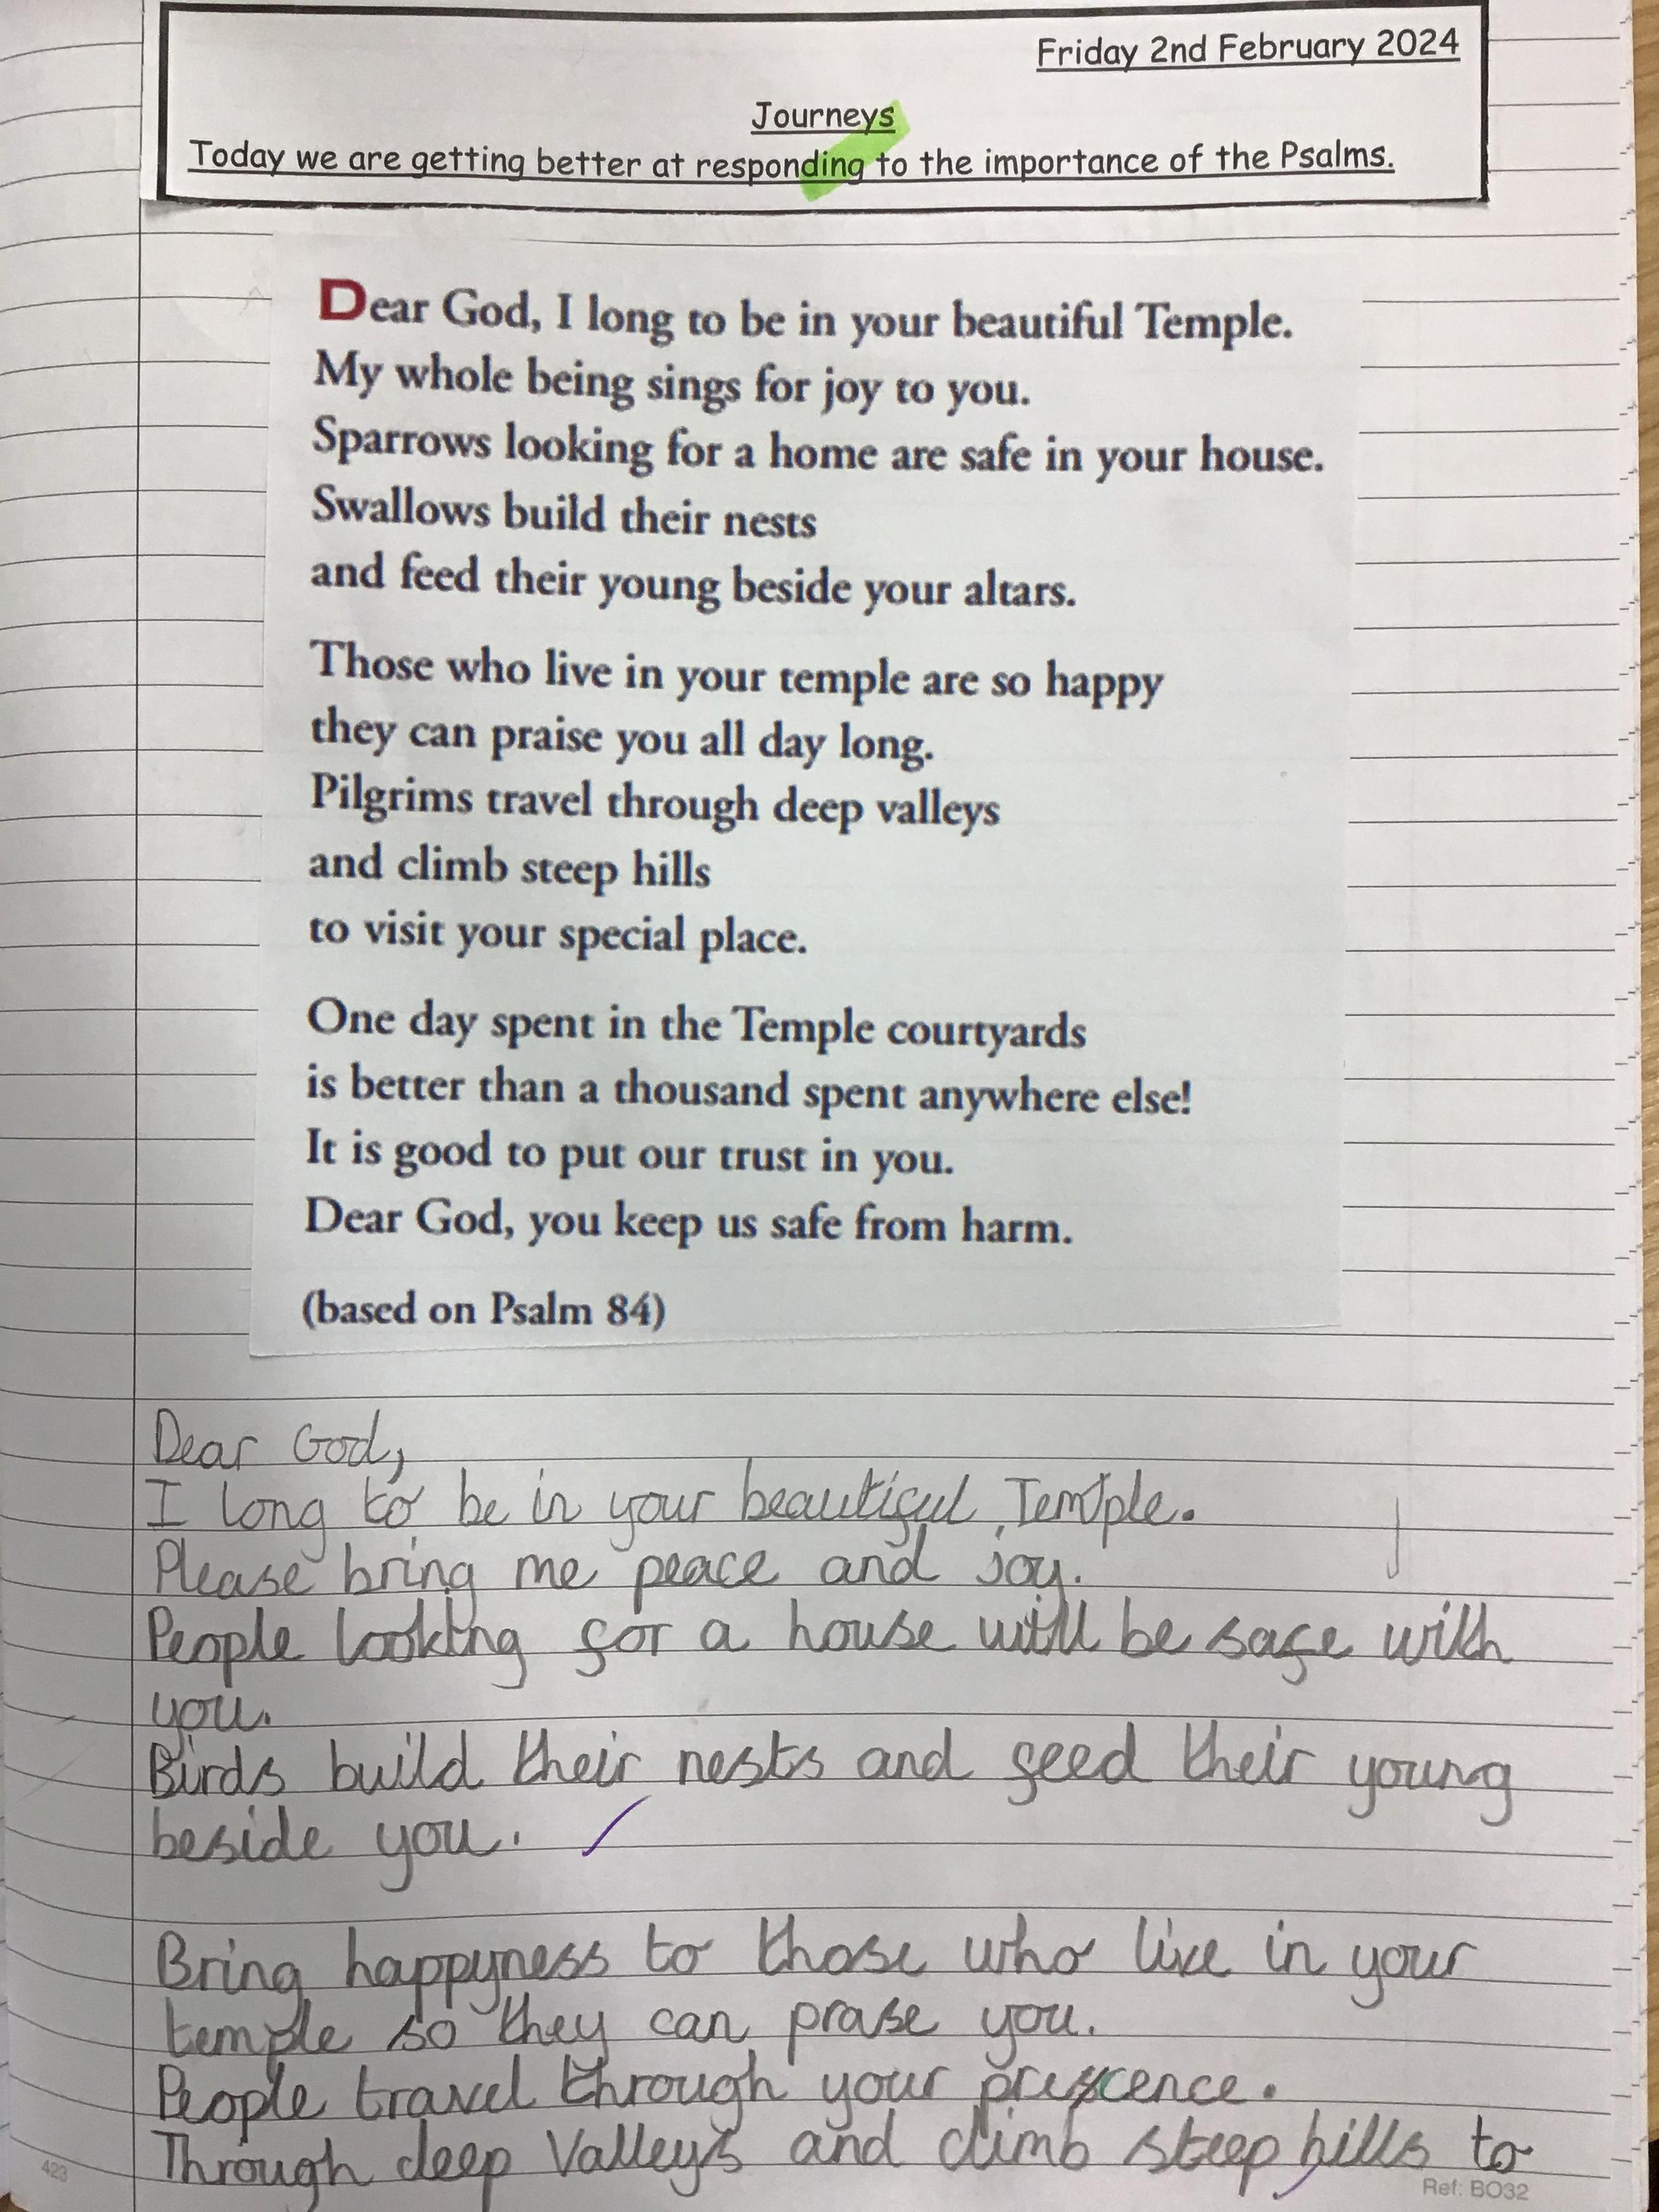 Friday 2nd February 2024
Journeys
Today we are getting better at responding to the importance of the Psalms.
Dear God, I long to be in your beautiful Temple.
My whole being sings for joy to you.
Sparrows looking for a home are safe in your house.
Swallows build their nests
and feed their young beside your altars.
Those who live in your temple are so happy
they can praise you all day long.
Pilgrims travel through deep valleys
and climb steep hills
to visit your special place.
One day spent in the Temple courtyards
is better than a thousand spent anywhere else!
It is good to put our trust in you.
Dear God, you keep us safe from harm.
(based on Psalm 84)
Dear God,
I long to be in your beautiful Temple.
Please bring me peace and joy.
People looking for a house will be safe with
you.
Birds build their nests and feed their young
beside you.
Bring happyness to those who live in your
temple so they can prase you.
People travel through your
Through deep Valleys and climb steep hills to
423
Ref: BO32